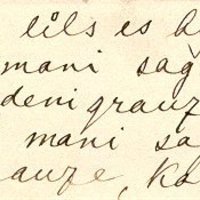 līls es b
mani sag
deni grauz
mani sa
auze, ka